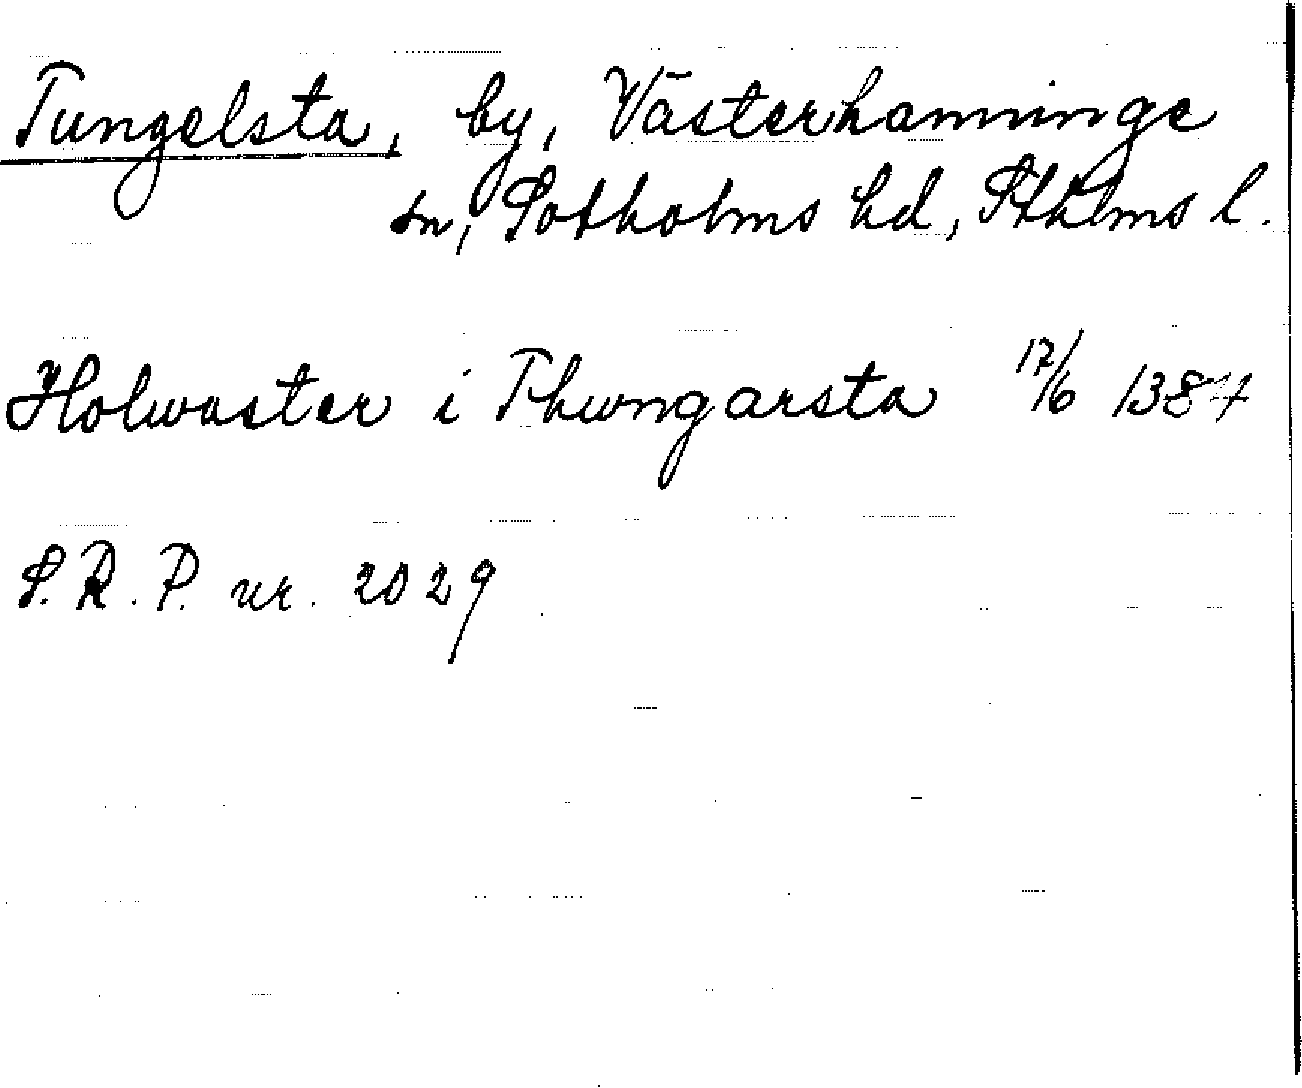 Tungelsta, by, Västerhanninge
sn, Sotholms hd, Sthlms l.
Holwaster i Thungarsta 17/6 1384
S.R.P. nr. 2029